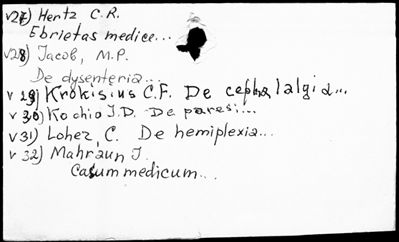 v27) Hertz C.R.
Ebrietas medice...
v28) Jacob, M.P.
De dysenteria...
v 29) Krokisius C.F. De cephalalgia...
v 30) Kochio J.D. De paresi...
v 31) Loher, C. De hemiplexia...
v 32) Mahraun J.
Casum medicum...